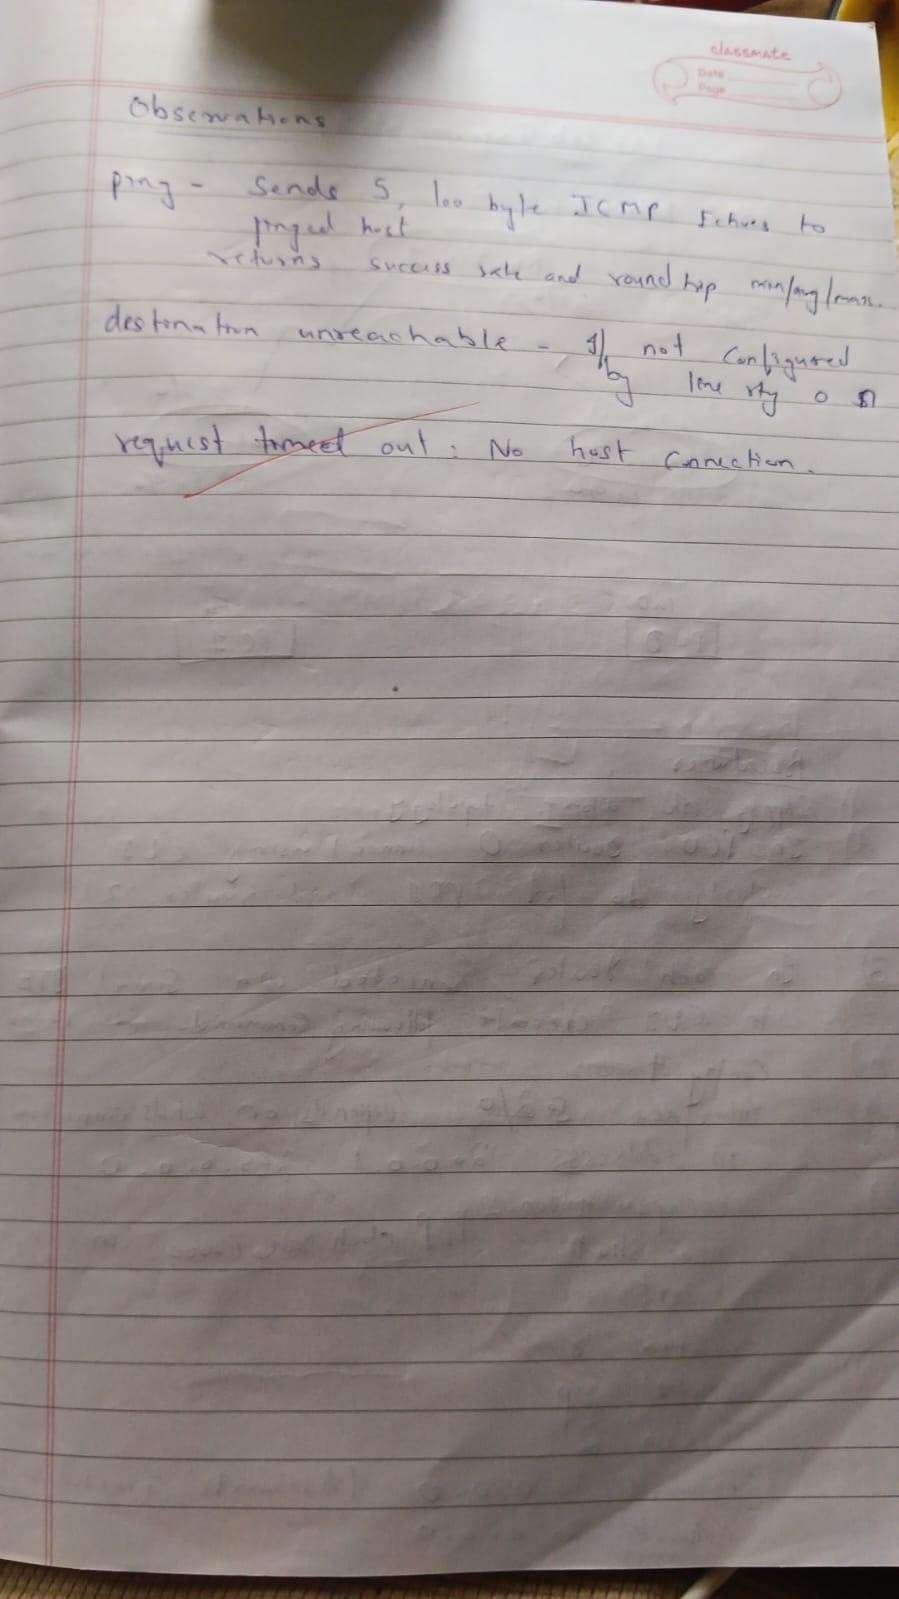 classmate
Date
Page
Observations
ping - Sends 5, 100 byte ICMP Echoes to
pinged host
returns success rate and round trip min/avg/max.
destination unreachable - If not configured
by line vty 0
request timeed out : No host connection.